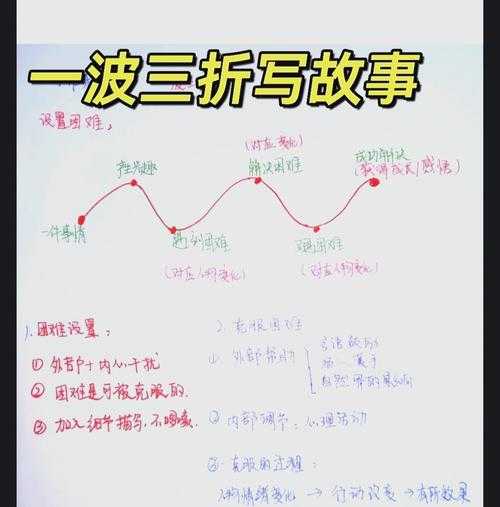 一波三折写故事
设置困难,
(对应变化)
产生兴趣
解决困难
成功解决
(获得成长/感悟)
一件事情
遇到困难
又遇困难
(对应人物变化)
(对应人物变化)
1. 困难设置:
① 外部+内心干扰
② 困难是可被克服的.
③ 加入细节描写,不啰嗦.
2. 克服困难
① 外部帮助
言语鼓励
自然界的
② 内部调节:心理活动
③ 克服的过程:
人物情绪变化 → 行动改变 → 有所效果